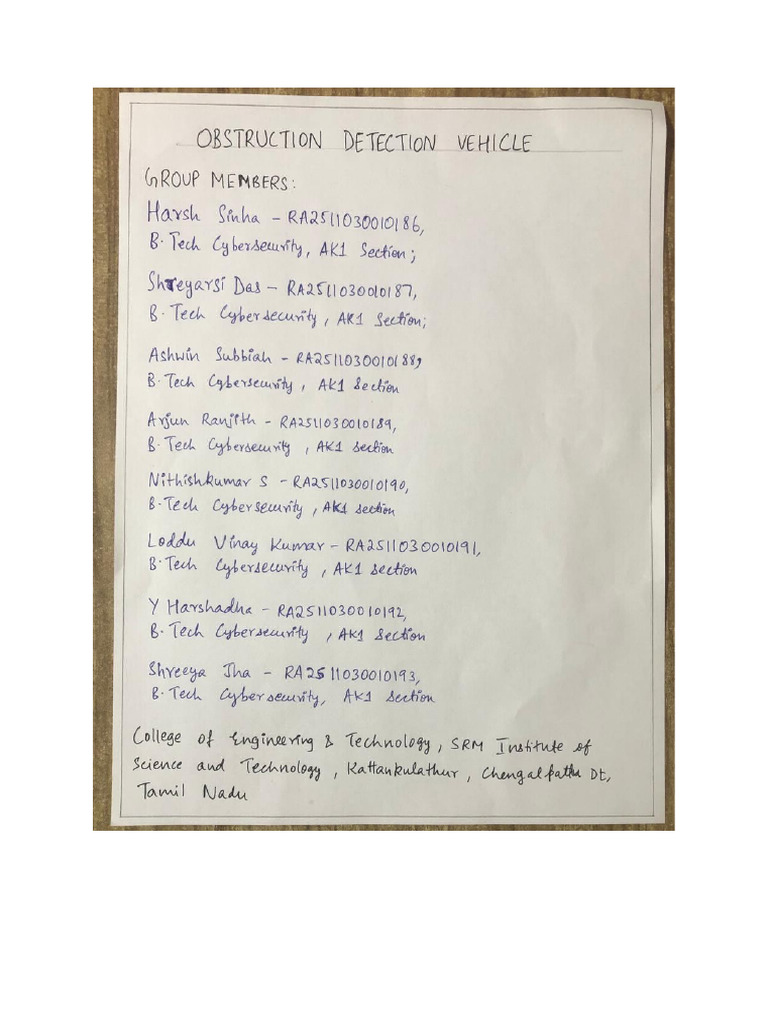 OBSTRUCTION DETECTION VEHICLE
GROUP MEMBERS:
Harsh Sinha - RA2511030010186,
B.Tech Cybersecurity, AK1 Section;
Shreyarsi Das - RA2511030010187,
B.Tech Cybersecurity, AK1 Section;
Ashwin Subbiah - RA2511030010188,
B.Tech Cybersecurity, AK1 Section
Arjun Ranjith - RA2511030010189,
B.Tech Cybersecurity, AK1 Section
Nithishkumar S - RA2511030010190,
B.Tech Cybersecurity, AK1 Section
Loddu Vinay Kumar - RA2511030010191,
B.Tech Cybersecurity, AK1 Section
Y Harshadha - RA2511030010192,
B.Tech Cybersecurity, AK1 Section
Shreeya Jha - RA2511030010193,
B.Tech Cybersecurity, AK1 Section
College of Engineering & Technology, SRM Institute of
Science and Technology, Kattankulathur, Chengalpattu Dt,
Tamil Nadu